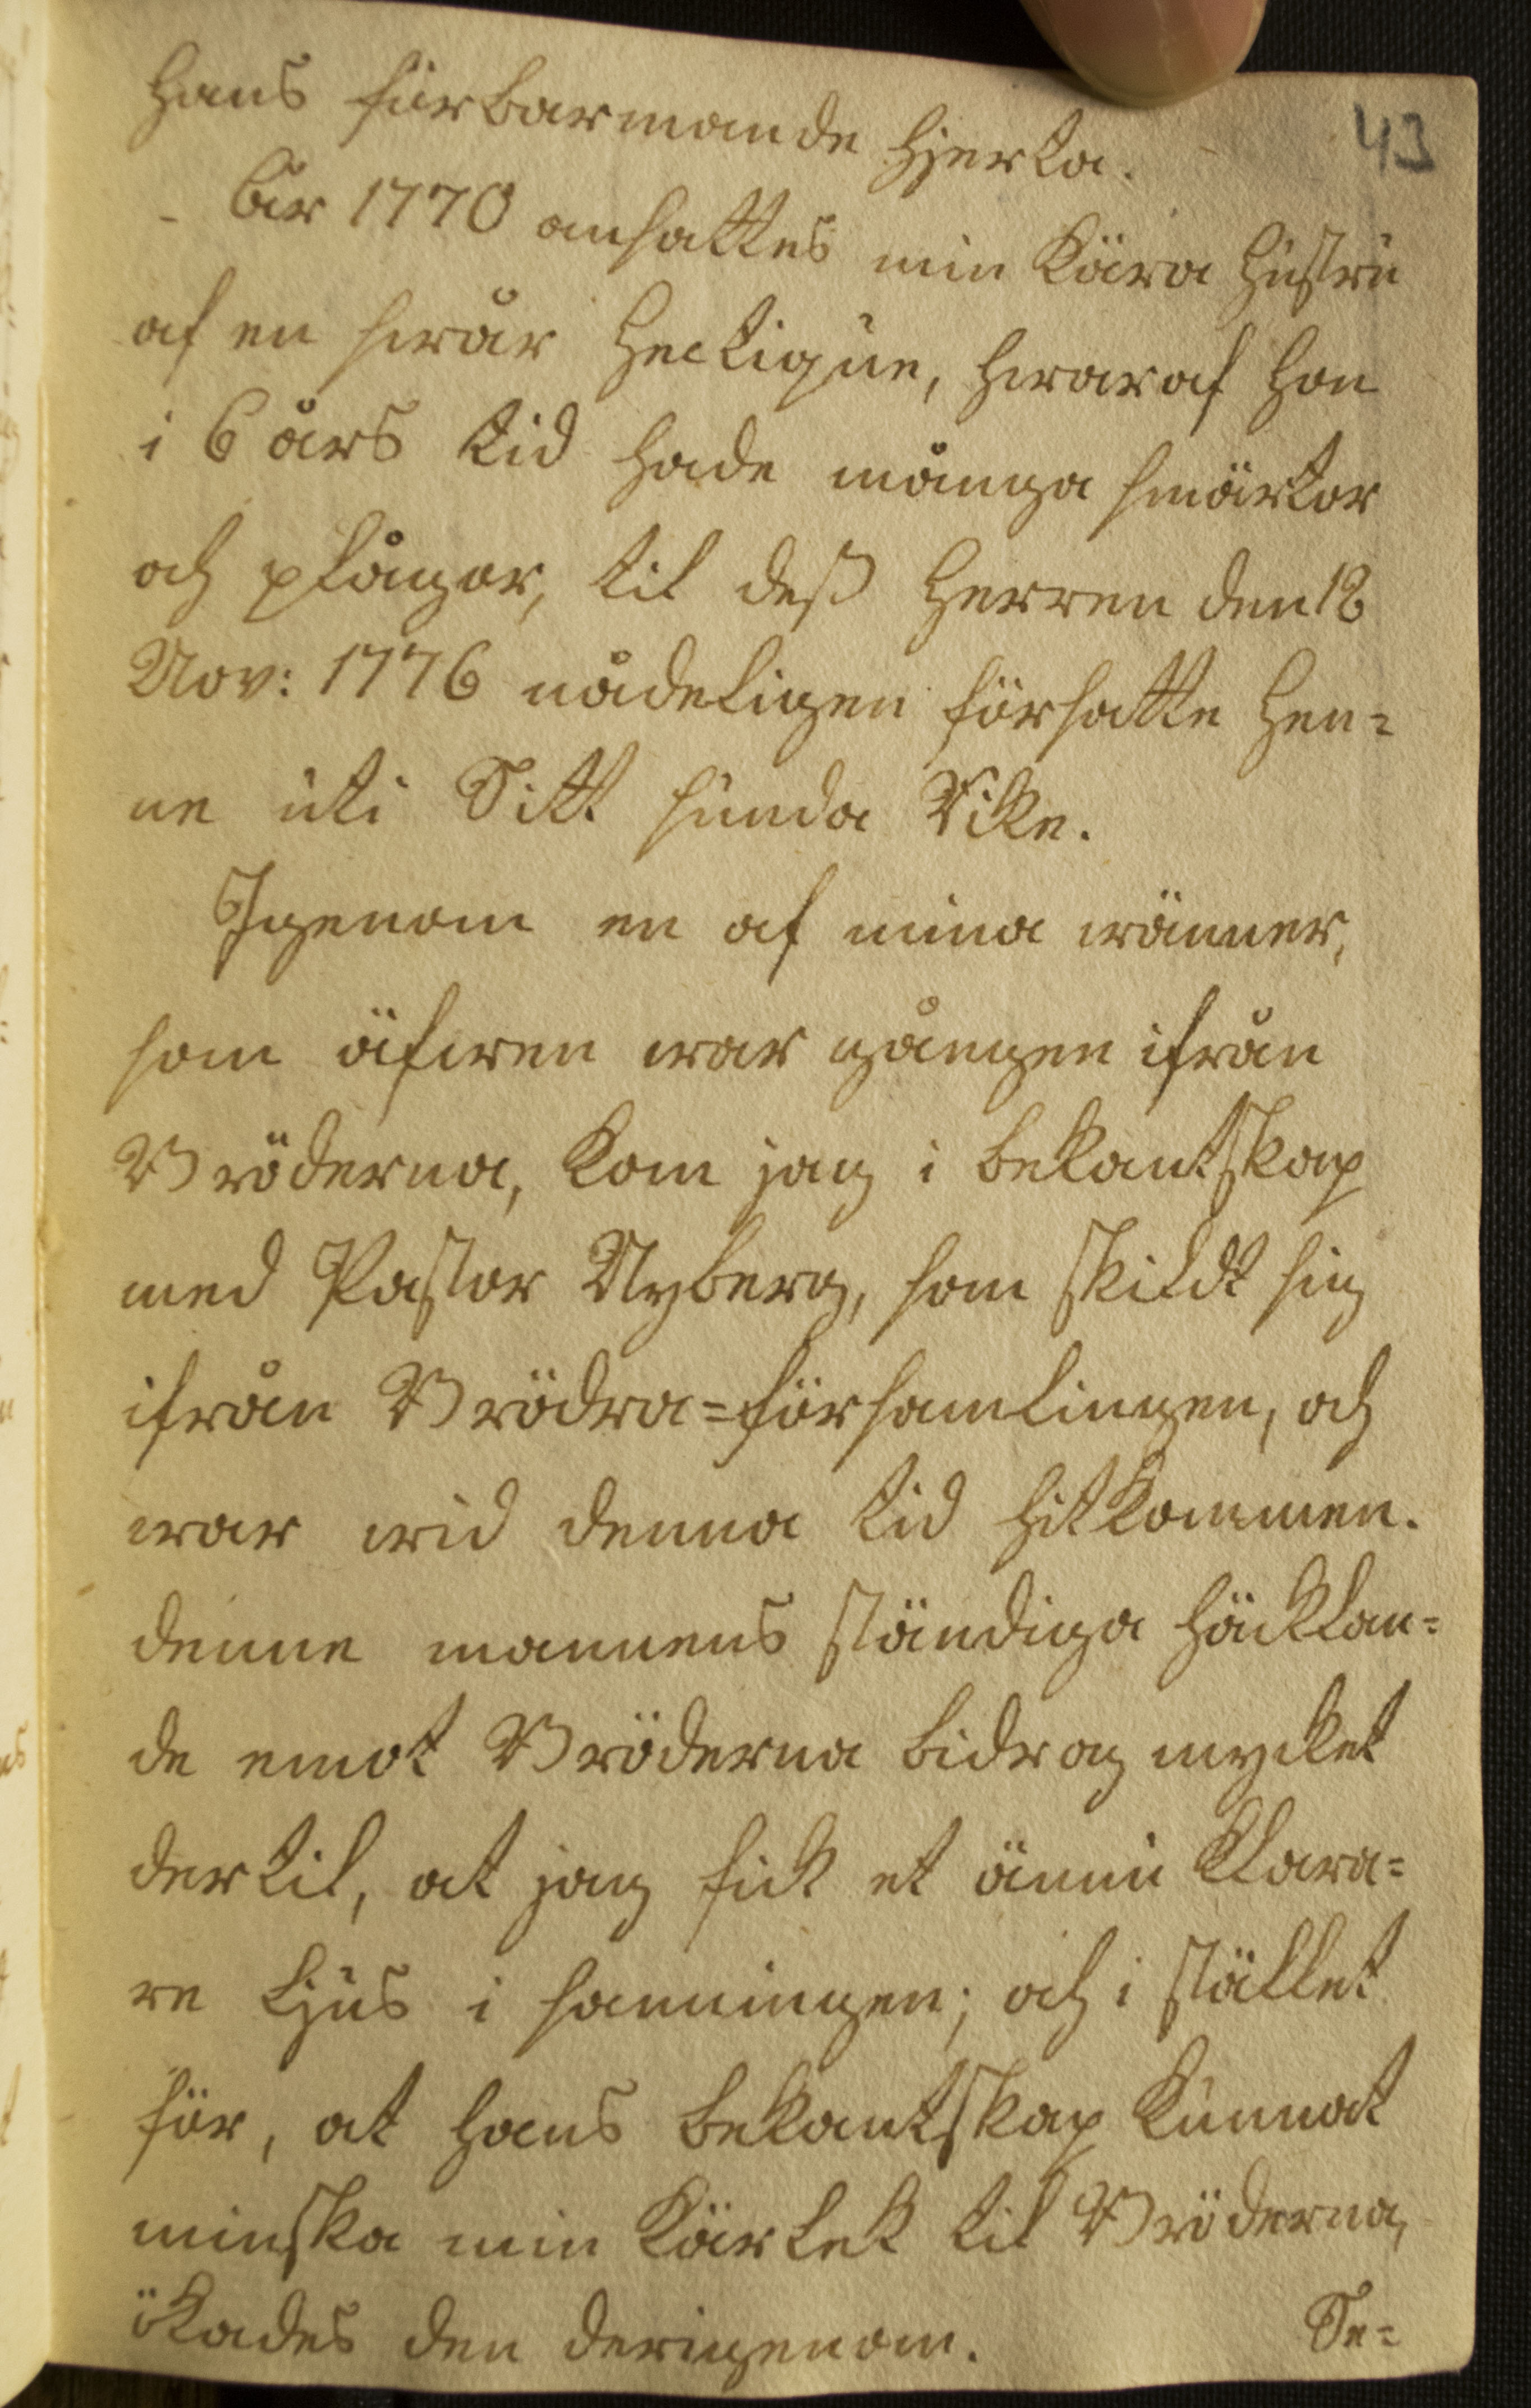 43
Hans förbarmande Hjerta.
År 1770 ansattes min Kära Hustru
af en swår Hectique, hwaraf Hon
i 6 års tid hade många smärtor
och plågor, til deß Herren den 18
Nov: 1776 nådeligen försatte Hen=
ne uti Sitt sunda Rike.
Igenom en af mina wänner,
som äfwen war gången ifrån
Bröderna, kom jag i bekantskap
med Pastor Nyberg, som skildt sig
ifrån Brödra=församlingen, och
war wid denna tid hitkommen.
denne mannens ständiga häcklan=
de emot Bröderna bidrog mycket
dertil, at jag fick et ännu klara=
re Ljus i sanningen; och i stället
för, at hans bekantskap kunnat
minska min Kärlek til Bröderna,
ökades den derigenom.
Se=